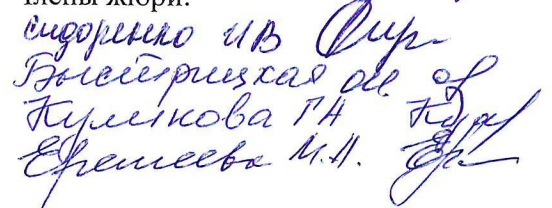 члены жюри:
Сидоренко ИВ
Быстрицкая
Куликова ГА
Еремеева М.А.